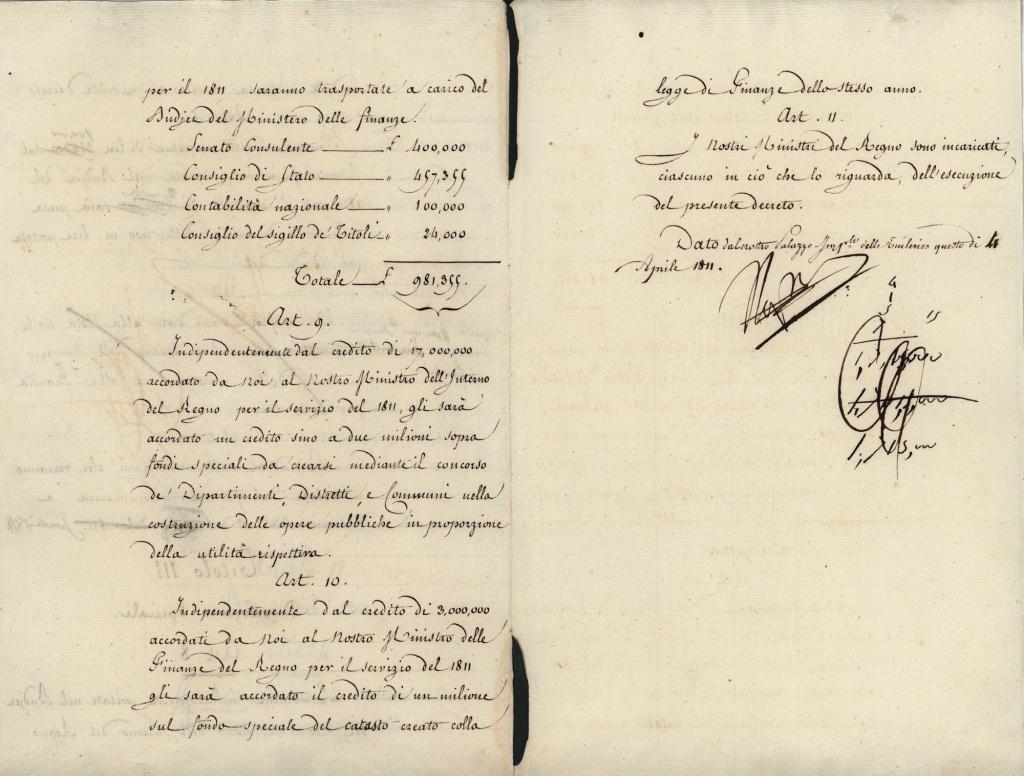 per il 1811 saranno trasportate a carico del
Budjet del Ministero delle finanze.
Senato Consulente £ 400,000
Consiglio di Stato " 457,355
Contabilità nazionale " 100,000
Consiglio del sigillo de' Titoli " 24,000
Totale £ 981,355.
Art. 9.
Indipendentemente dal credito di 17,000,000
accordato da noi al nostro Ministro dell'Interno
del Regno per il servizio del 1811, gli sarà
accordato un credito sino a due milioni sopra
fondi speciali da crearsi mediante il concorso
de' Dipartimenti, Distretti, e Communi nella
costruzione delle opere pubbliche in proporzione
della utilità rispettiva.
Art. 10.
Indipendentemente dal credito di 3,000,000
accordati da noi al nostro Ministro delle
Finanze del Regno per il servizio del 1811
gli sarà accordato il credito di un milione
sul fondo speciale del catasto creato colla
legge di Finanze dello stesso anno.
Art. 11.
I nostri Ministri del Regno sono incaricati,
ciascuno in ciò che lo riguarda, dell'esecuzione
del presente decreto.
Dato dal nostro Palazzo Imp.le delle Tuileries questo di 4
Aprile 1811.